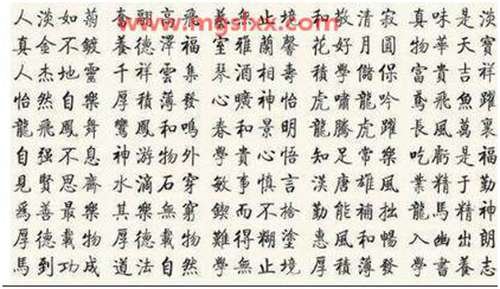 人淡如菊 無止境 和敬清寂 真味是淡
www.mgslxx.com
真金不鍍 雅蘭馨 花好月圓 物華天寶
人杰地靈 千祥雲集 琴酒相壽 積學儲保 富貴吉祥
怡然自樂 厚積薄發 心曠神怡 虎嘯龍吟 鳶飛魚躍
龍飛鳳舞 鸞鳳和鳴 春和景明 龍騰虎躍 長風萬裏
自强不息 神游物外 和貴心悟 知足常樂 吃虧是福
見賢思齋 水滴石穿 敏事慎言 漢唐雄風 業精于勤
爲善最樂 其樂無窮 鍥而不捨 勤能補拙 龍馬精神
厚德載物 厚德載物 難得糊塗 惠風和暢 入幽出朗
馬到功成 道法自然 學無止境 厚積薄發 學書養志